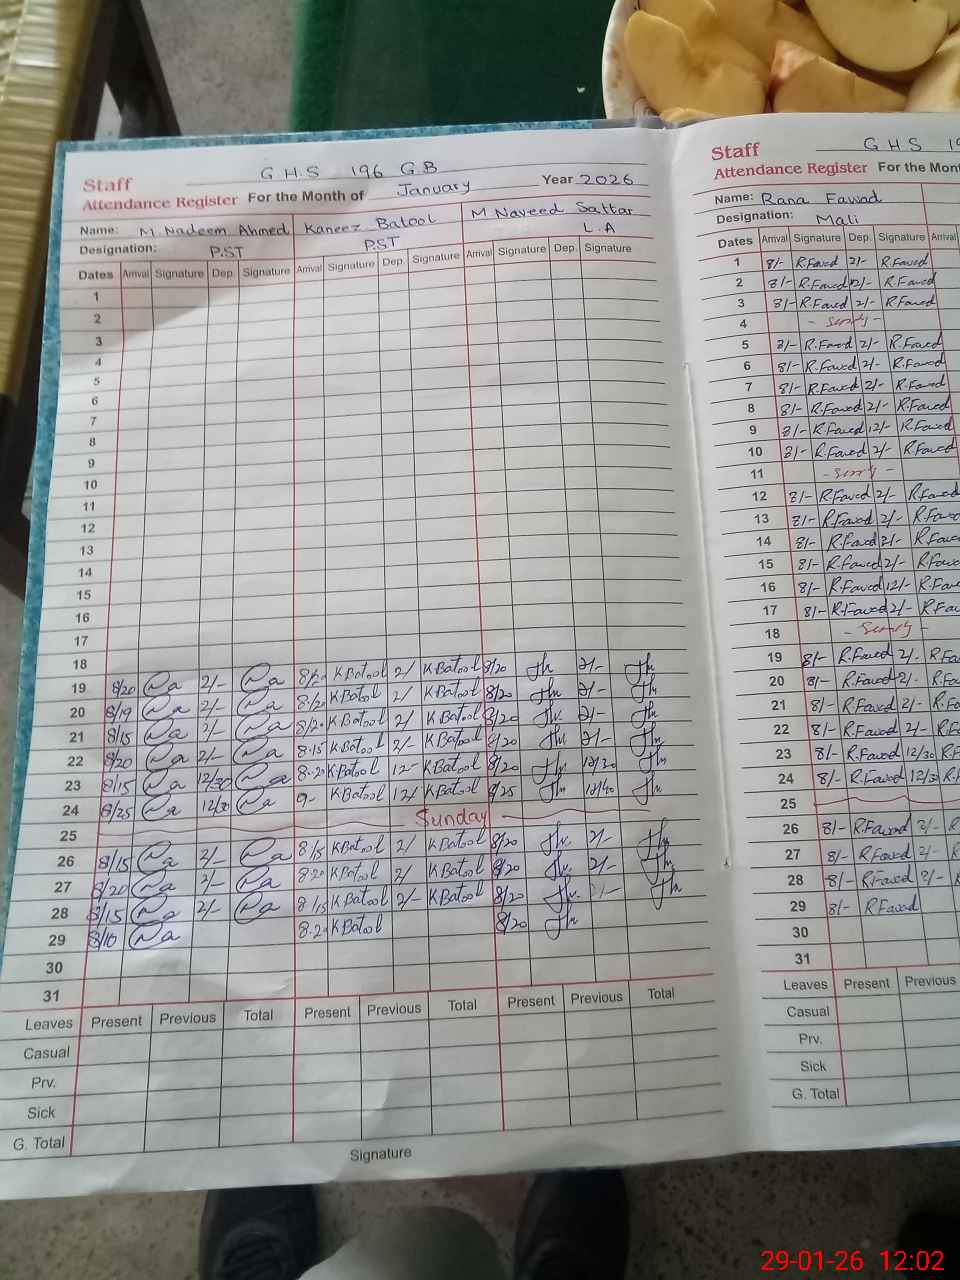 Staff G.H.S 196 GB
Attendance Register For the Month of January Year 2026
Name: M Nadeem Ahmed Kaneez Batool M Naveed Sattar
Designation: P.ST P.ST L.A
Dates Arrival Signature Dep. Signature Arrival Signature Dep. Signature Arrival Signature Dep. Signature
1
2
3
4
5
6
7
8
9
10
11
12
13
14
15
16
17
18
19 8/20 2/- 8/20 K Batool 2/ K Batool 8/20 2/-
20 8/19 2/- 8/20 K Batool 2/ K Batool 8/20 2/-
21 8/15 2/- 8/20 K Batool 2/ K Batool 8/20 2/-
22 8/20 2/- 8.15 K Batool 2/- K Batool 8/20 2/-
23 8/15 12/30 8.20 K Batool 12- K Batool 8/20
24 8/25 12/30 9- K Batool 12/ K Batool 8/25
25 Sunday
26 8/15 2/- 8/15 K Batool 2/ K Batool 8/20 2/-
27 8/20 2/- 8.20 K Batool 2/ K Batool 8/20 2/-
28 8/15 2/- 8/15 K Batool 2/- K Batool 8/20 2/-
29 8/10 8.20 K Batool 8/20
30
31
Leaves Present Previous Total Present Previous Total Present Previous Total
Casual
Prv.
Sick
G. Total
Signature
Staff G H S 19
Attendance Register For the Mon
Name: Rana Fawad
Designation: Mali
Dates Arrival Signature Dep. Signature Arrival
1 8/- R.Fawad 2/- R.Fawad
2 8/- R.Fawad 2/- R.Fawad
3 8/- R.Fawad 2/- R.Fawad
4
5 8/- R.Fawad 2/- R.Fawad
6 8/- R.Fawad 2/- R.Fawad
7 8/- R.Fawad 2/- R.Fawad
8 8/- R.Fawad 2/- R.Fawad
9 8/- R.Fawad 12/- R.Fawad
10 8/- R.Fawad 2/- R.Fawad
11
12 8/- R.Fawad 2/- R.Fawad
13 8/- R.Fawad 2/- R.Fawad
14 8/- R.Fawad 2/- R.Fawa
15 8/- R.Fawad 2/- R.Fawa
16 8/- R.Fawad 12/- R.Faw
17 8/- R.Fawad 2/- R.Faw
18
19 8/- R.Fawad 2/- R.Fa
20 8/- R.Fawad 2/- R.Fa
21 8/- R.Fawad 2/- R.Fa
22 8/- R.Fawad 2/- R.F
23 8/- R.Fawad 12/30 R.F
24 8/- R.Fawad 12/30 R.F
25
26 8/- R.Fawad 2/- R
27 8/- R.Fawad 2/- R
28 8/- R.Fawad 2/-
29 8/- R.Fawad
30
31
Leaves Present Previous
Casual
Prv.
Sick
G. Total
29-01-26 12:02